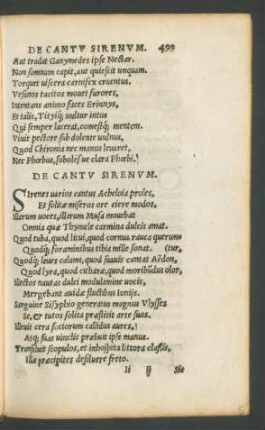 DE CANTV SIRENVM. 499
Aut tradat Ganymedes ipse Nectar.
Non somnum capit, aut quiescit unquam.
Torquet uiscera carnifex cruentus,
Vesanos tacitos mouet furores,
Intentans animo faces Erinnys,
Et talis, Tityiq́; uultur intus
Qui semper lacerat, comestq́; mentem.
Viuit pectore sub dolente uulnus,
Quod Chironia nec manus leuaret,
Nec Phœbus, sobolesue clara Phœbi.
DE CANTV SIRENVM.
SIrenes uarios cantus Acheloia proles,
Et solitæ miseros ore ciere modos,
Illarum uoces, illarum Musa mouebat
Omnia quæ Thymele carmina dulcis amat.
Quod tuba, quod litui, quod cornua rauca querun-
Quodq́; foraminibus tibia mille sonat. (tur,
Quodq́; leues calami, quod suauis cantat Aëdon,
Quod lyra, quod citharæ, quod moribūdus olor,
Illectos nautas dulci modulamine uocis,
Mergebant auidæ fluctibus Ionijs.
Sanguine Sisyphio generatus magnus Vlysses
Se, & tutos solita præstitit arte suos.
Illeuit cera sociorum callidus aures,
Atq́; suas uinclis præbuit ipse manus.
Transiluit scopulos, et inhospita littora classis,
Illæ præcipites desiluere freto.
Ii ij Sic